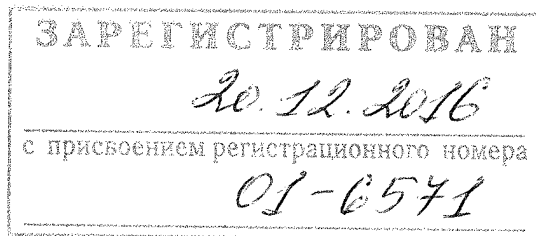 ЗАРЕГИСТРИРОВАН
20.12.2016
с присвоением регистрационного номера
01-6571